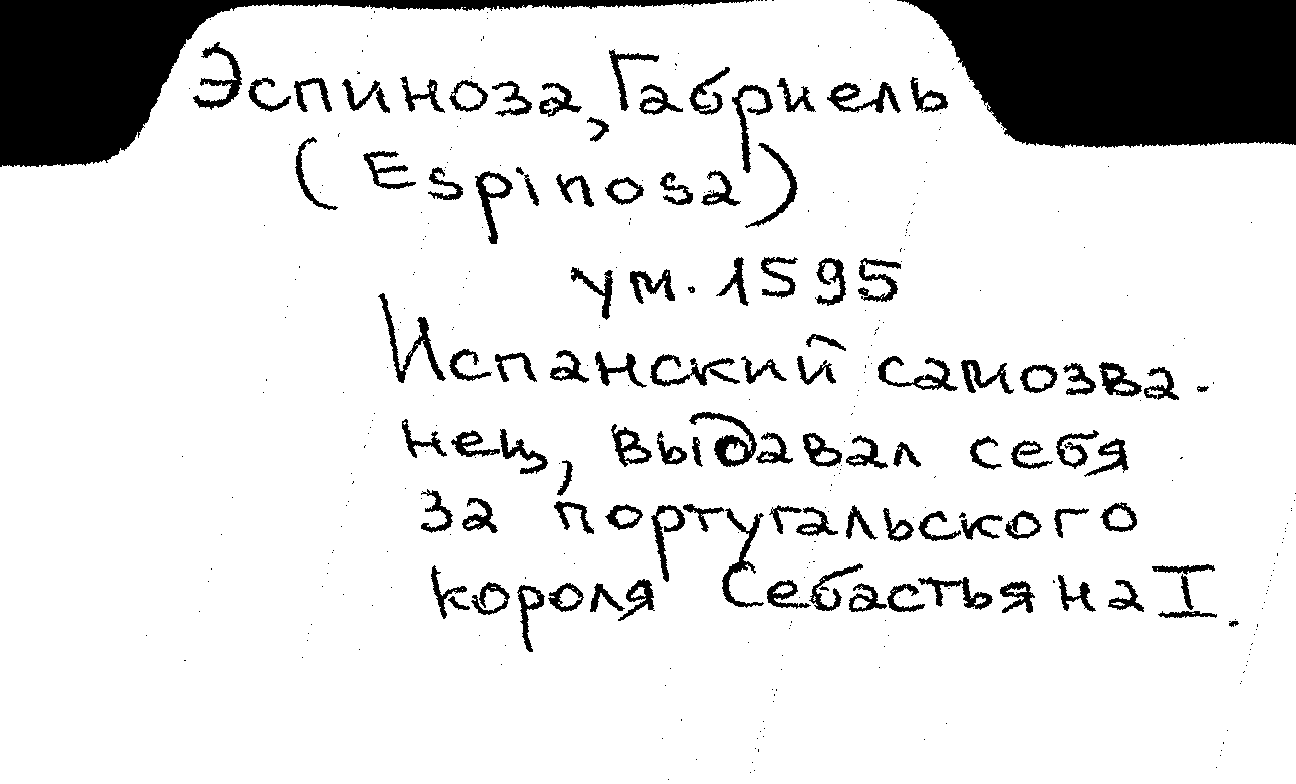 Эспиноза, Габриель
(Espinosa)
ум. 1595
Испанский самозва-
нец, выдавал себя
за португальского
короля Себастьяна I.